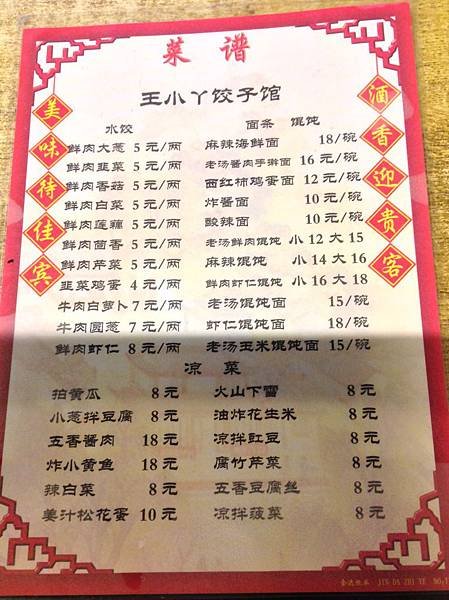 菜谱
王小丫饺子馆
美味待佳宾
酒香迎贵客
水饺
鲜肉大葱 5 元/两
鲜肉韭菜 5 元/两
鲜肉香菇 5 元/两
鲜肉白菜 5 元/两
鲜肉莲藕 5 元/两
鲜肉茴香 5 元/两
鲜肉芹菜 5 元/两
韭菜鸡蛋 4 元/两
牛肉白萝卜 7 元/两
牛肉圆葱 7 元/两
鲜肉虾仁 8 元/两
面条 馄饨
麻辣海鲜面 18/碗
老汤酱肉手擀面 16 元/碗
西红柿鸡蛋面 12 元/碗
炸酱面 10 元/碗
酸辣面 10 元/碗
老汤鲜肉馄饨 小 12 大 15
麻辣馄饨 小 14 大 16
鲜肉虾仁馄饨 小 16 大 18
老汤馄饨面 15/碗
虾仁馄饨面 18/碗
老汤玉米馄饨面 15/碗
凉菜
拍黄瓜 8 元
小葱拌豆腐 8 元
五香酱肉 18 元
炸小黄鱼 18 元
辣白菜 8 元
姜汁松花蛋 10 元
火山下雪 8 元
油炸花生米 8 元
凉拌豇豆 8 元
腐竹芹菜 8 元
五香豆腐丝 8 元
凉拌菠菜 8 元
金达纸业 JIN DA ZHI YE NO:1